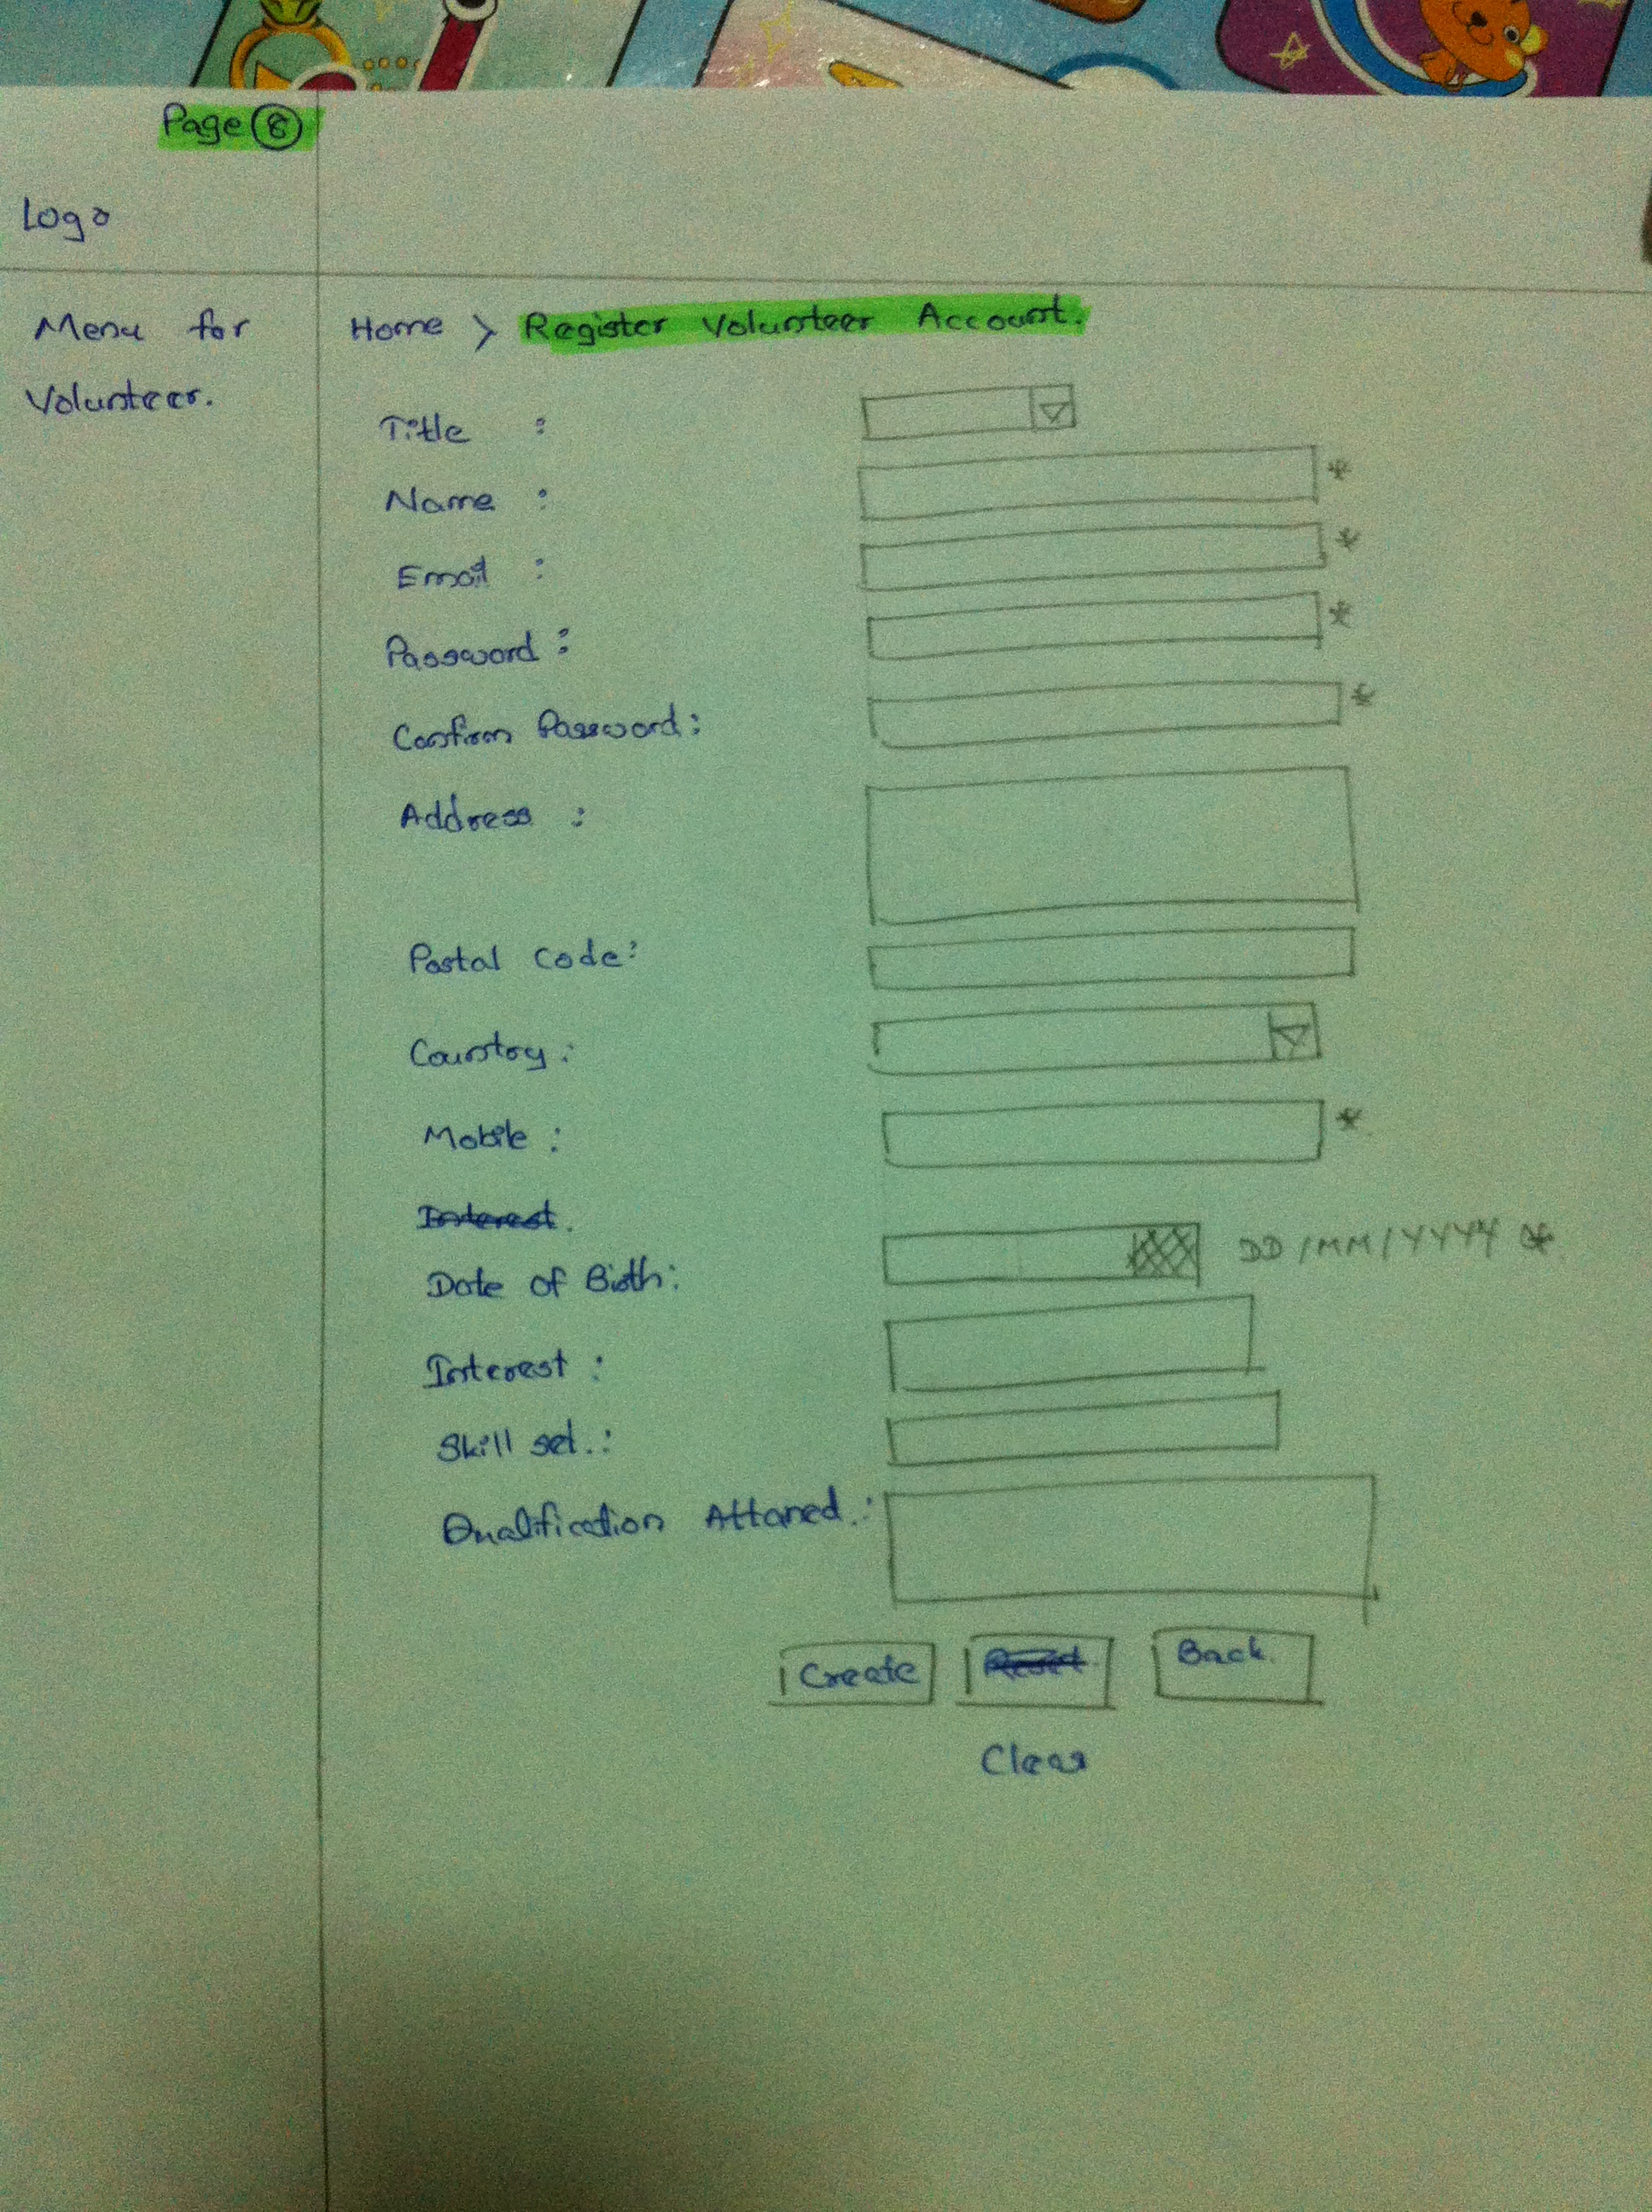 Page 8
Logo
Menu for
Volunteer.
Home > Register Volunteer Account.
Title :
Name : *
Email : *
Password : *
Confirm Password : *
Address :
Postal Code :
Country :
Mobile : *
Interest.
Date of Birth : DD/MM/YYYY *
Interest :
Skill set. :
Qualification Attaned. :
Create Reset Back.
Clear